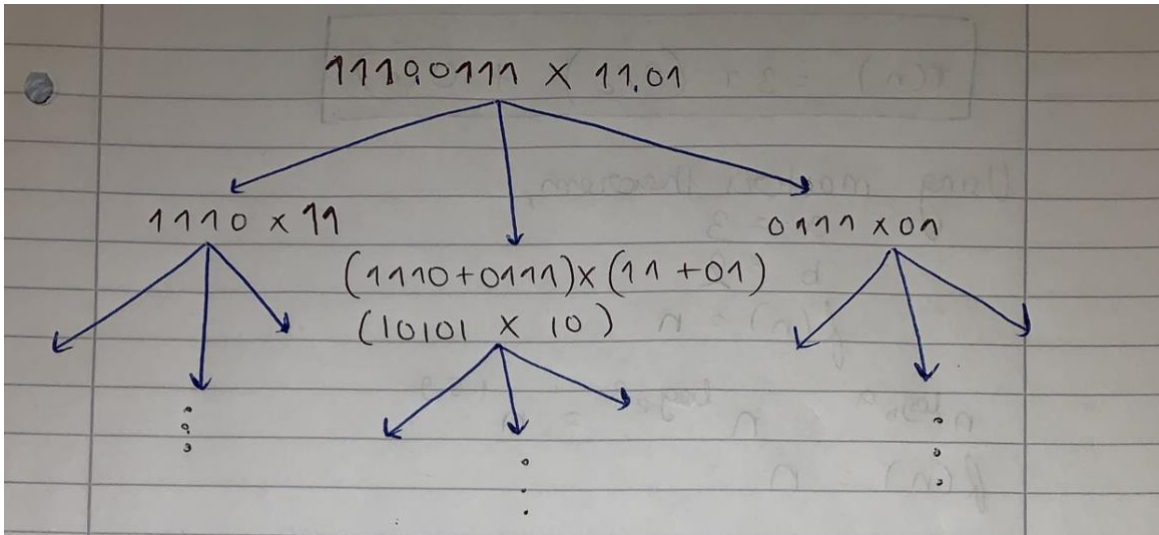 1110,0111 × 11,01
1110 × 11
0111 × 01
(1110+0111)×(11 +01)
(10101 × 10)